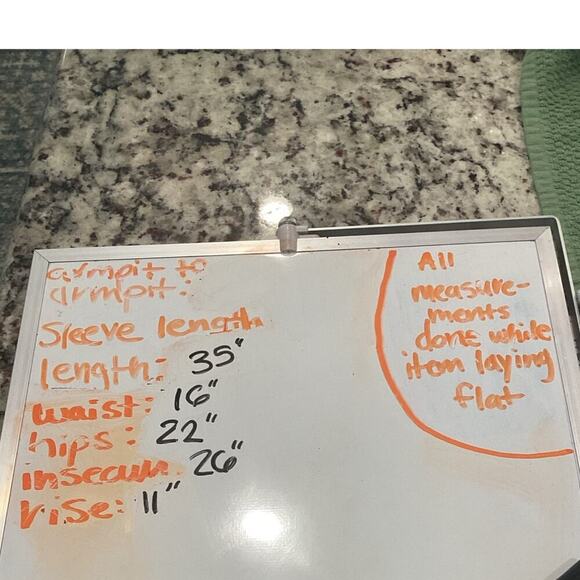 armpit to
armpit:
Sleeve length
length: 35"
waist: 16"
hips: 22"
insecum 26"
rise: 11"
All
measure-
ments
done while
item laying
flat